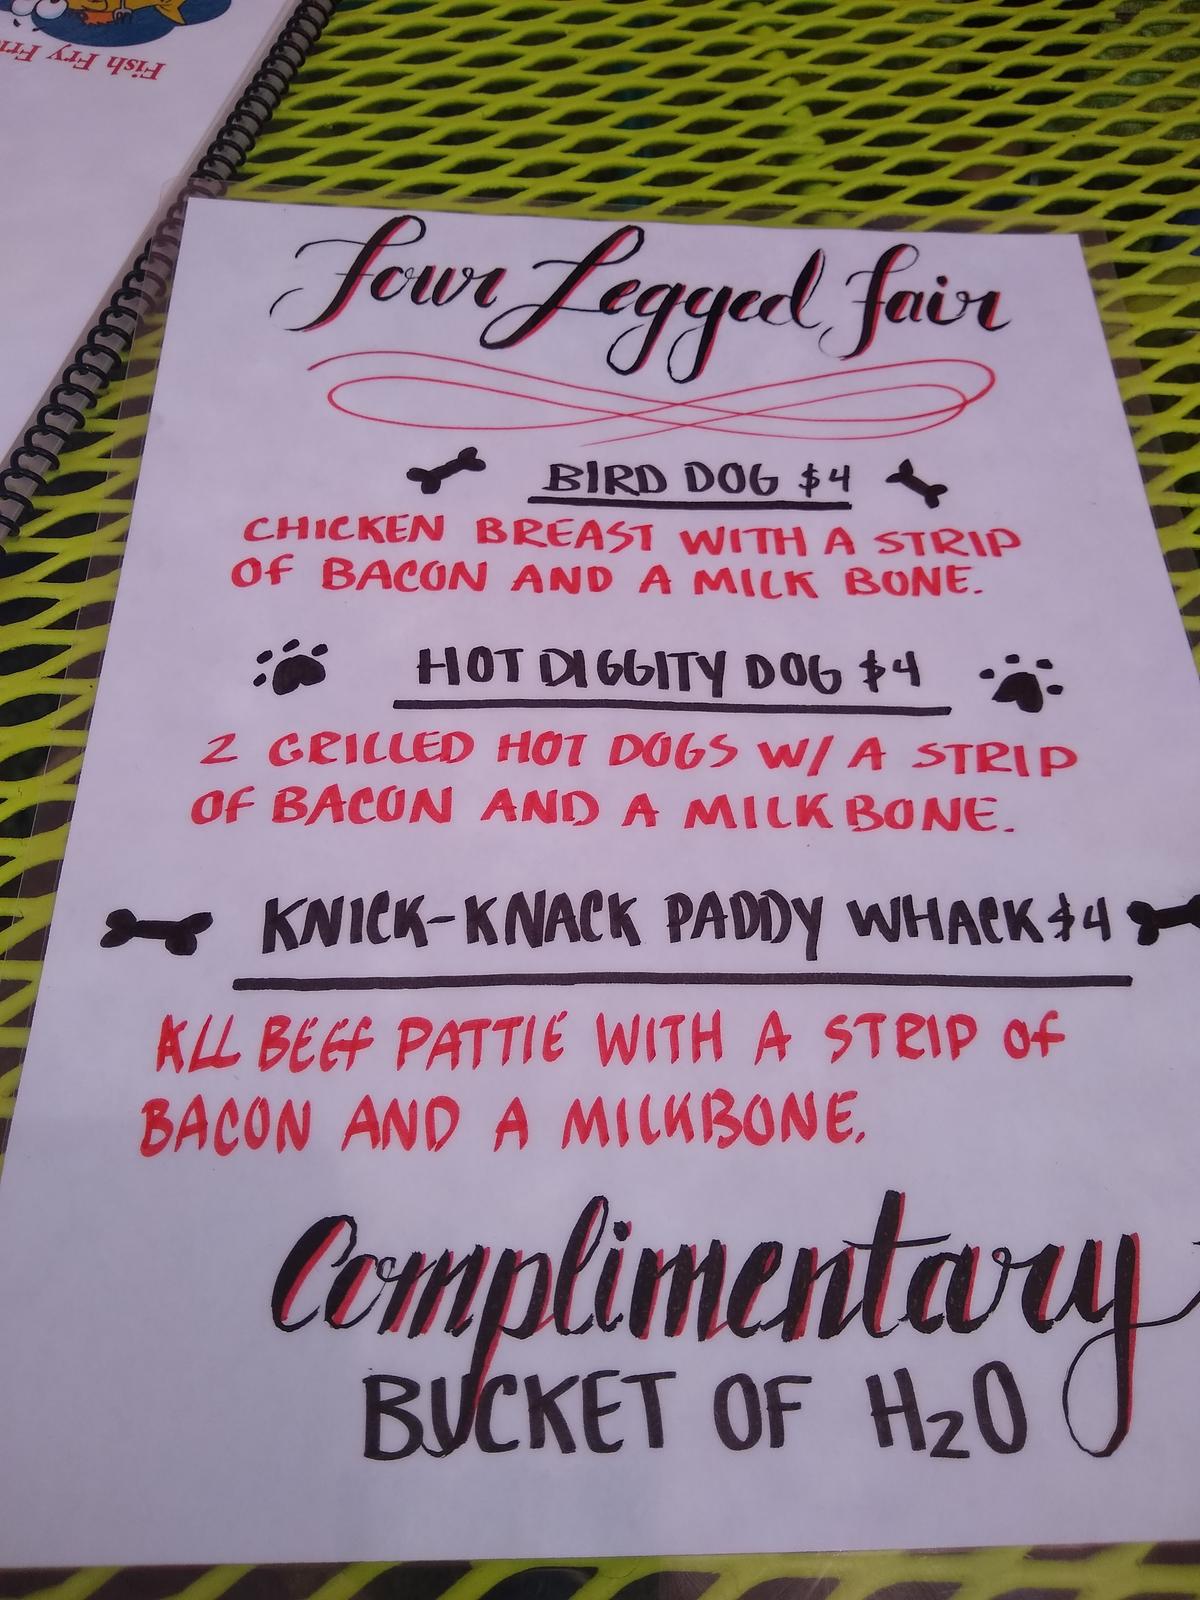 Fish Fry
Four Legged Fair
BIRD DOG $4
CHICKEN BREAST WITH A STRIP
OF BACON AND A MILK BONE.
HOT DIGGITY DOG $4
2 GRILLED HOT DOGS W/ A STRIP
OF BACON AND A MILKBONE.
KNICK-KNACK PADDY WHACK $4
ALL BEEF PATTIE WITH A STRIP OF
BACON AND A MILKBONE.
Complimentary
BUCKET OF H2O